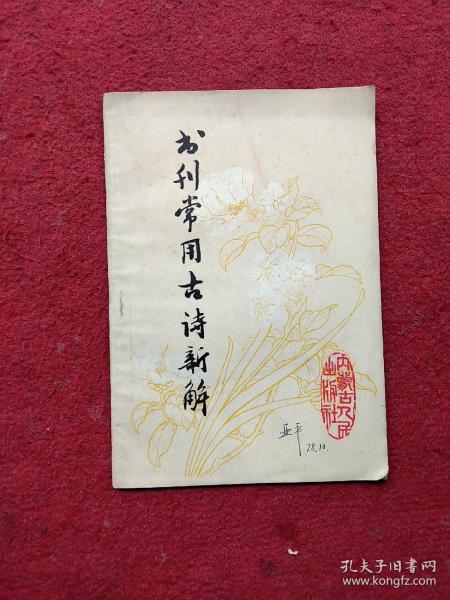 书刊常用古诗新解
内蒙古人民
出版社
亚平
78.10.
孔夫子旧书网
www.kongfz.com